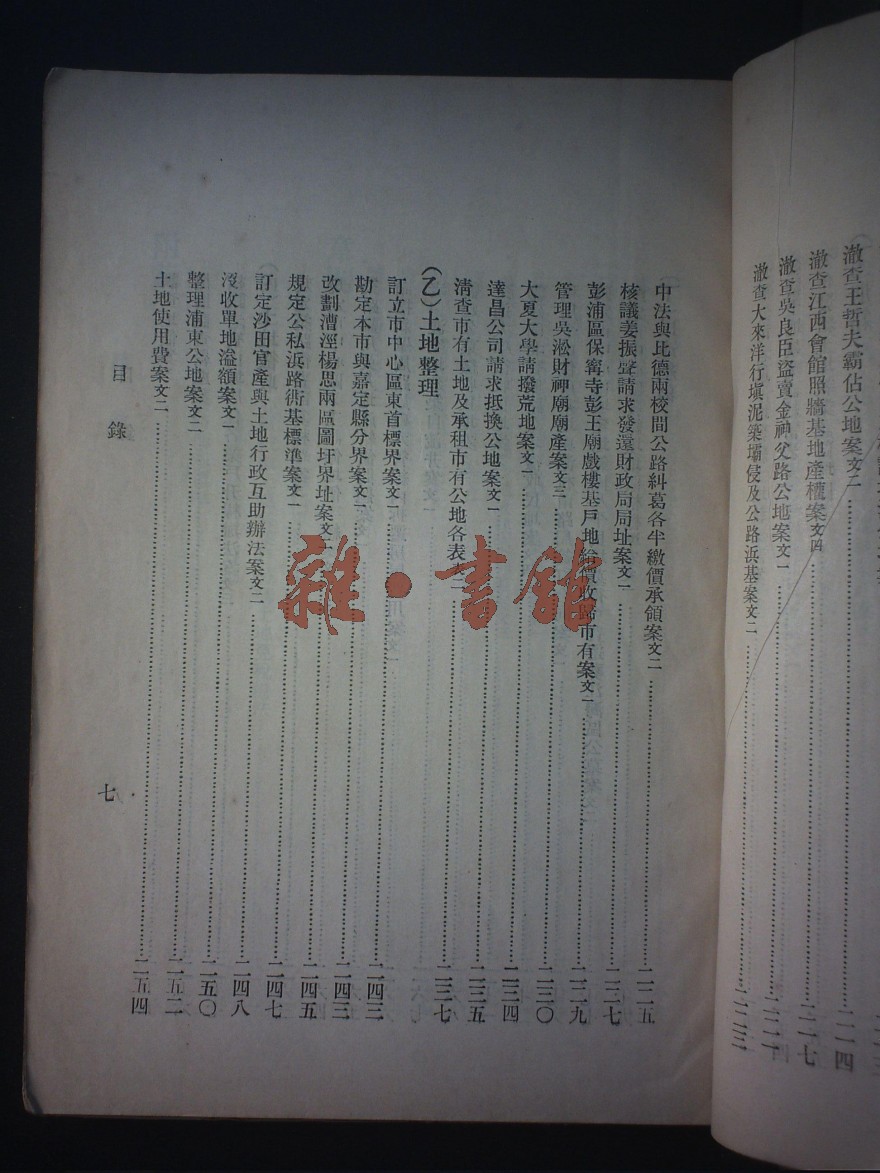 澈查王哲夫霸佔公地案文二……二一四
澈查江西會館照牆基地產權案文四……二一七
澈查吳良臣盜賣金神父路公地案文一……二二一
澈查大來洋行填泥築壩侵及公路浜基案文二……二二三
中法與比德兩校間公路糾葛各半繳價承領案文二……二二五
核議姜振聲請求發還財政局局址案文一……二二七
彭浦區保寧寺彭王廟戲樓基戶地給價收歸市有案文二……二二九
管理吳淞財神廟廟產案文三……二三〇
大夏大學請撥荒地案文一……二三四
達昌公司請求抵換公地案文一……二三五
清查市有土地及承租市有公地各表文二……二三七
(乙)土地整理
訂立市中心區東首標界案文一……二四三
勘定本市與嘉定縣分界案文一……二四三
改劃漕涇楊思兩區圖圩界址案文二……二四五
規定公私浜路衖基標準案文一……二四七
訂定沙田官產與土地行政互助辦法案文二……二四八
沒收單地溢額案文一……二五〇
整理浦東公地案文二……二五二
土地使用費案文二……二五四
目錄
七
雜·書館